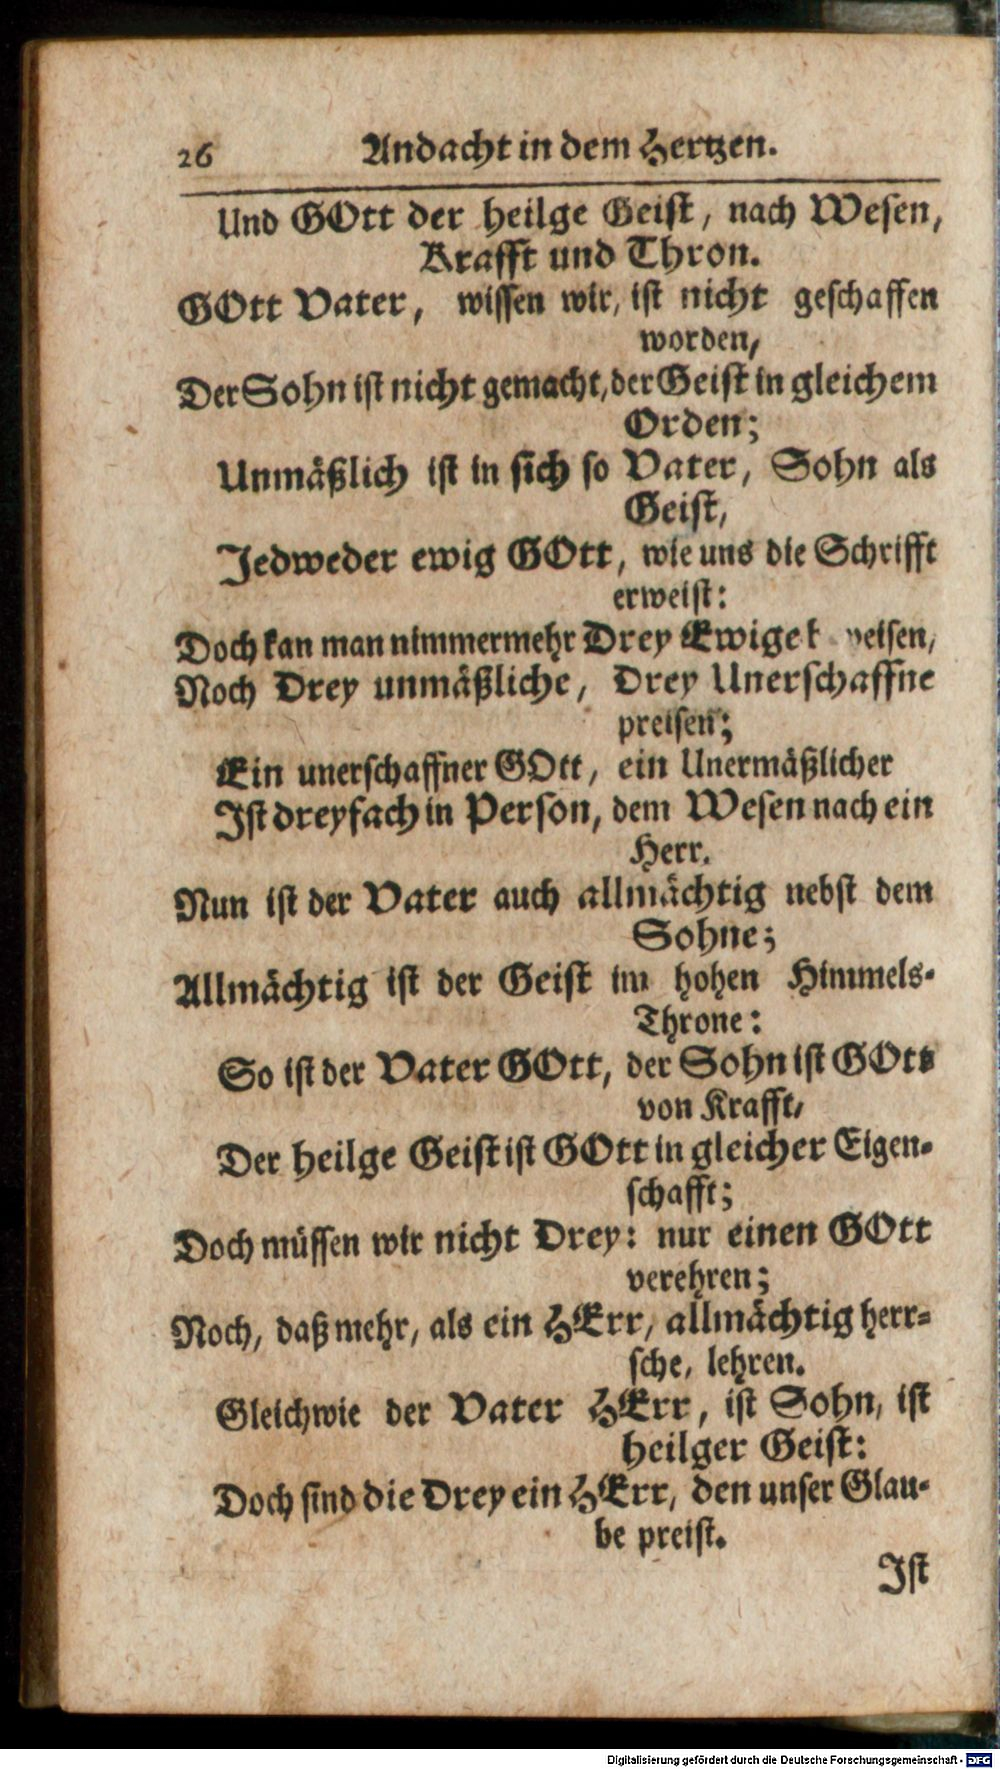 26 Andacht in dem Hertzen.
Und GOtt der heilge Geist, nach Wesen,
Krafft und Thron.
GOtt Vater, wissen wir, ist nicht geschaffen
worden,
Der Sohn ist nicht gemacht, der Geist in gleichem
Orden;
Unmäßlich ist in sich so Vater, Sohn als
Geist,
Jedweder ewig GOtt, wie uns die Schrifft
erweist:
Doch kan man nimmermehr Drey
Noch Drey unmäßliche, Drey Unerschaffne
preisen;
Ein unerschaffner GOtt, ein Unermäßlicher
Ist dreyfach in Person, dem Wesen nach ein
Herr.
Nun ist der Vater auch allmächtig nebst dem
Sohne;
Allmächtig ist der Geist im hohen Himmels-
Throne:
So ist der Vater GOtt, der Sohn ist GOtt
von Krafft,
Der heilge Geist ist GOtt in gleicher Eigen-
schafft;
Doch müssen wir nicht Drey: nur einen GOtt
verehren;
Noch, daß mehr, als ein HErr, allmächtig herr-
sche, lehren.
Gleichwie der Vater HErr, ist Sohn, ist
heilger Geist:
Doch sind die Drey ein HErr, den unser Glau-
be preist.
Ist
Digitalisierung gefördert durch die Deutsche Forschungsgemeinschaft - DFG